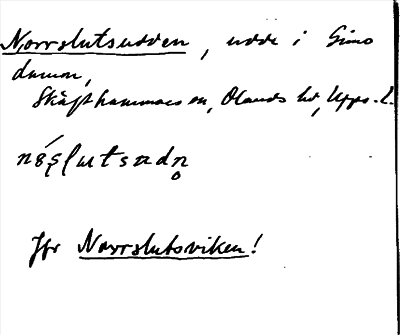 Norrslutsudden, udde i Gimo
damm,
Skäfthammars sn, Olands hd, Upps. l.
Jfr Norrslutsviken!